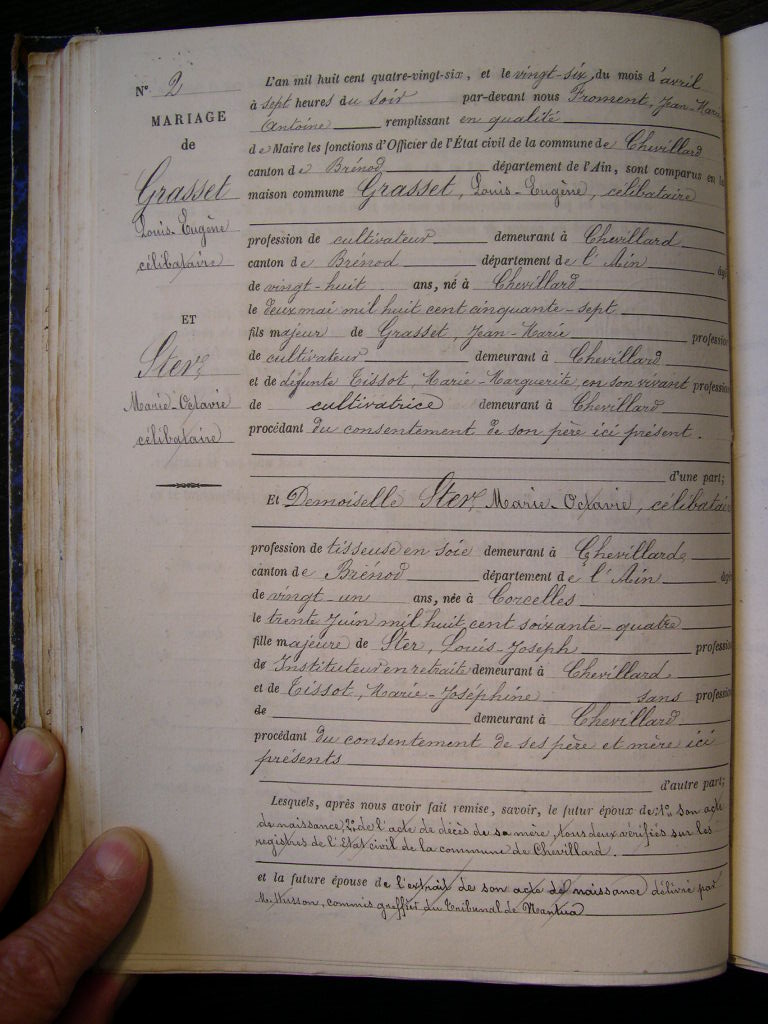 N° 2
MARIAGE
de
Grasset
Louis-Eugène
célibataire
ET
Ster
Marie-Octavie
célibataire
L'an mil huit cent quatre-vingt-six, et le vingt-six du mois d'avril
à sept heures du soir par-devant nous Froment, Jean-Marie
Antoine remplissant en qualité
de Maire les fonctions d'Officier de l'État civil de la commune de Chevillard
canton de Brénod département de l'Ain, sont comparus en la
maison commune Grasset, Louis-Eugène, célibataire
profession de cultivateur demeurant à Chevillard
canton de Brénod département de l'Ain âgé
de vingt-huit ans, né à Chevillard
le deux mai mil huit cent cinquante-sept
fils majeur de Grasset, Jean-Marie profession
de cultivateur demeurant à Chevillard
et de défunte Tissot, Marie-Marguerite, en son vivant profession
de cultivatrice demeurant à Chevillard
procédant du consentement de son père ici présent.
d'une part;
Et Demoiselle Ster, Marie-Octavie, célibataire
profession de tisseuse en soie demeurant à Chevillard
canton de Brénod département de l'Ain âgée
de vingt-un ans, née à Corcelles
le trente Juin mil huit cent soixante-quatre
fille majeure de Ster, Louis-Joseph profession
de Instituteur en retraite demeurant à Chevillard
et de Tissot, Marie-Joséphine sans profession
de demeurant à Chevillard
procédant du consentement de ses père et mère ici
présents
d'autre part;
Lesquels, après nous avoir fait remise, savoir, le futur époux de: 1° son acte
de naissance, 2° de l'acte de décès de sa mère, tous deux vérifiés sur les
registres de l'État civil de la commune de Chevillard.
et la future épouse de l'extrait de son acte de naissance délivré par
M. Husson, commis greffier du Tribunal de Nantua